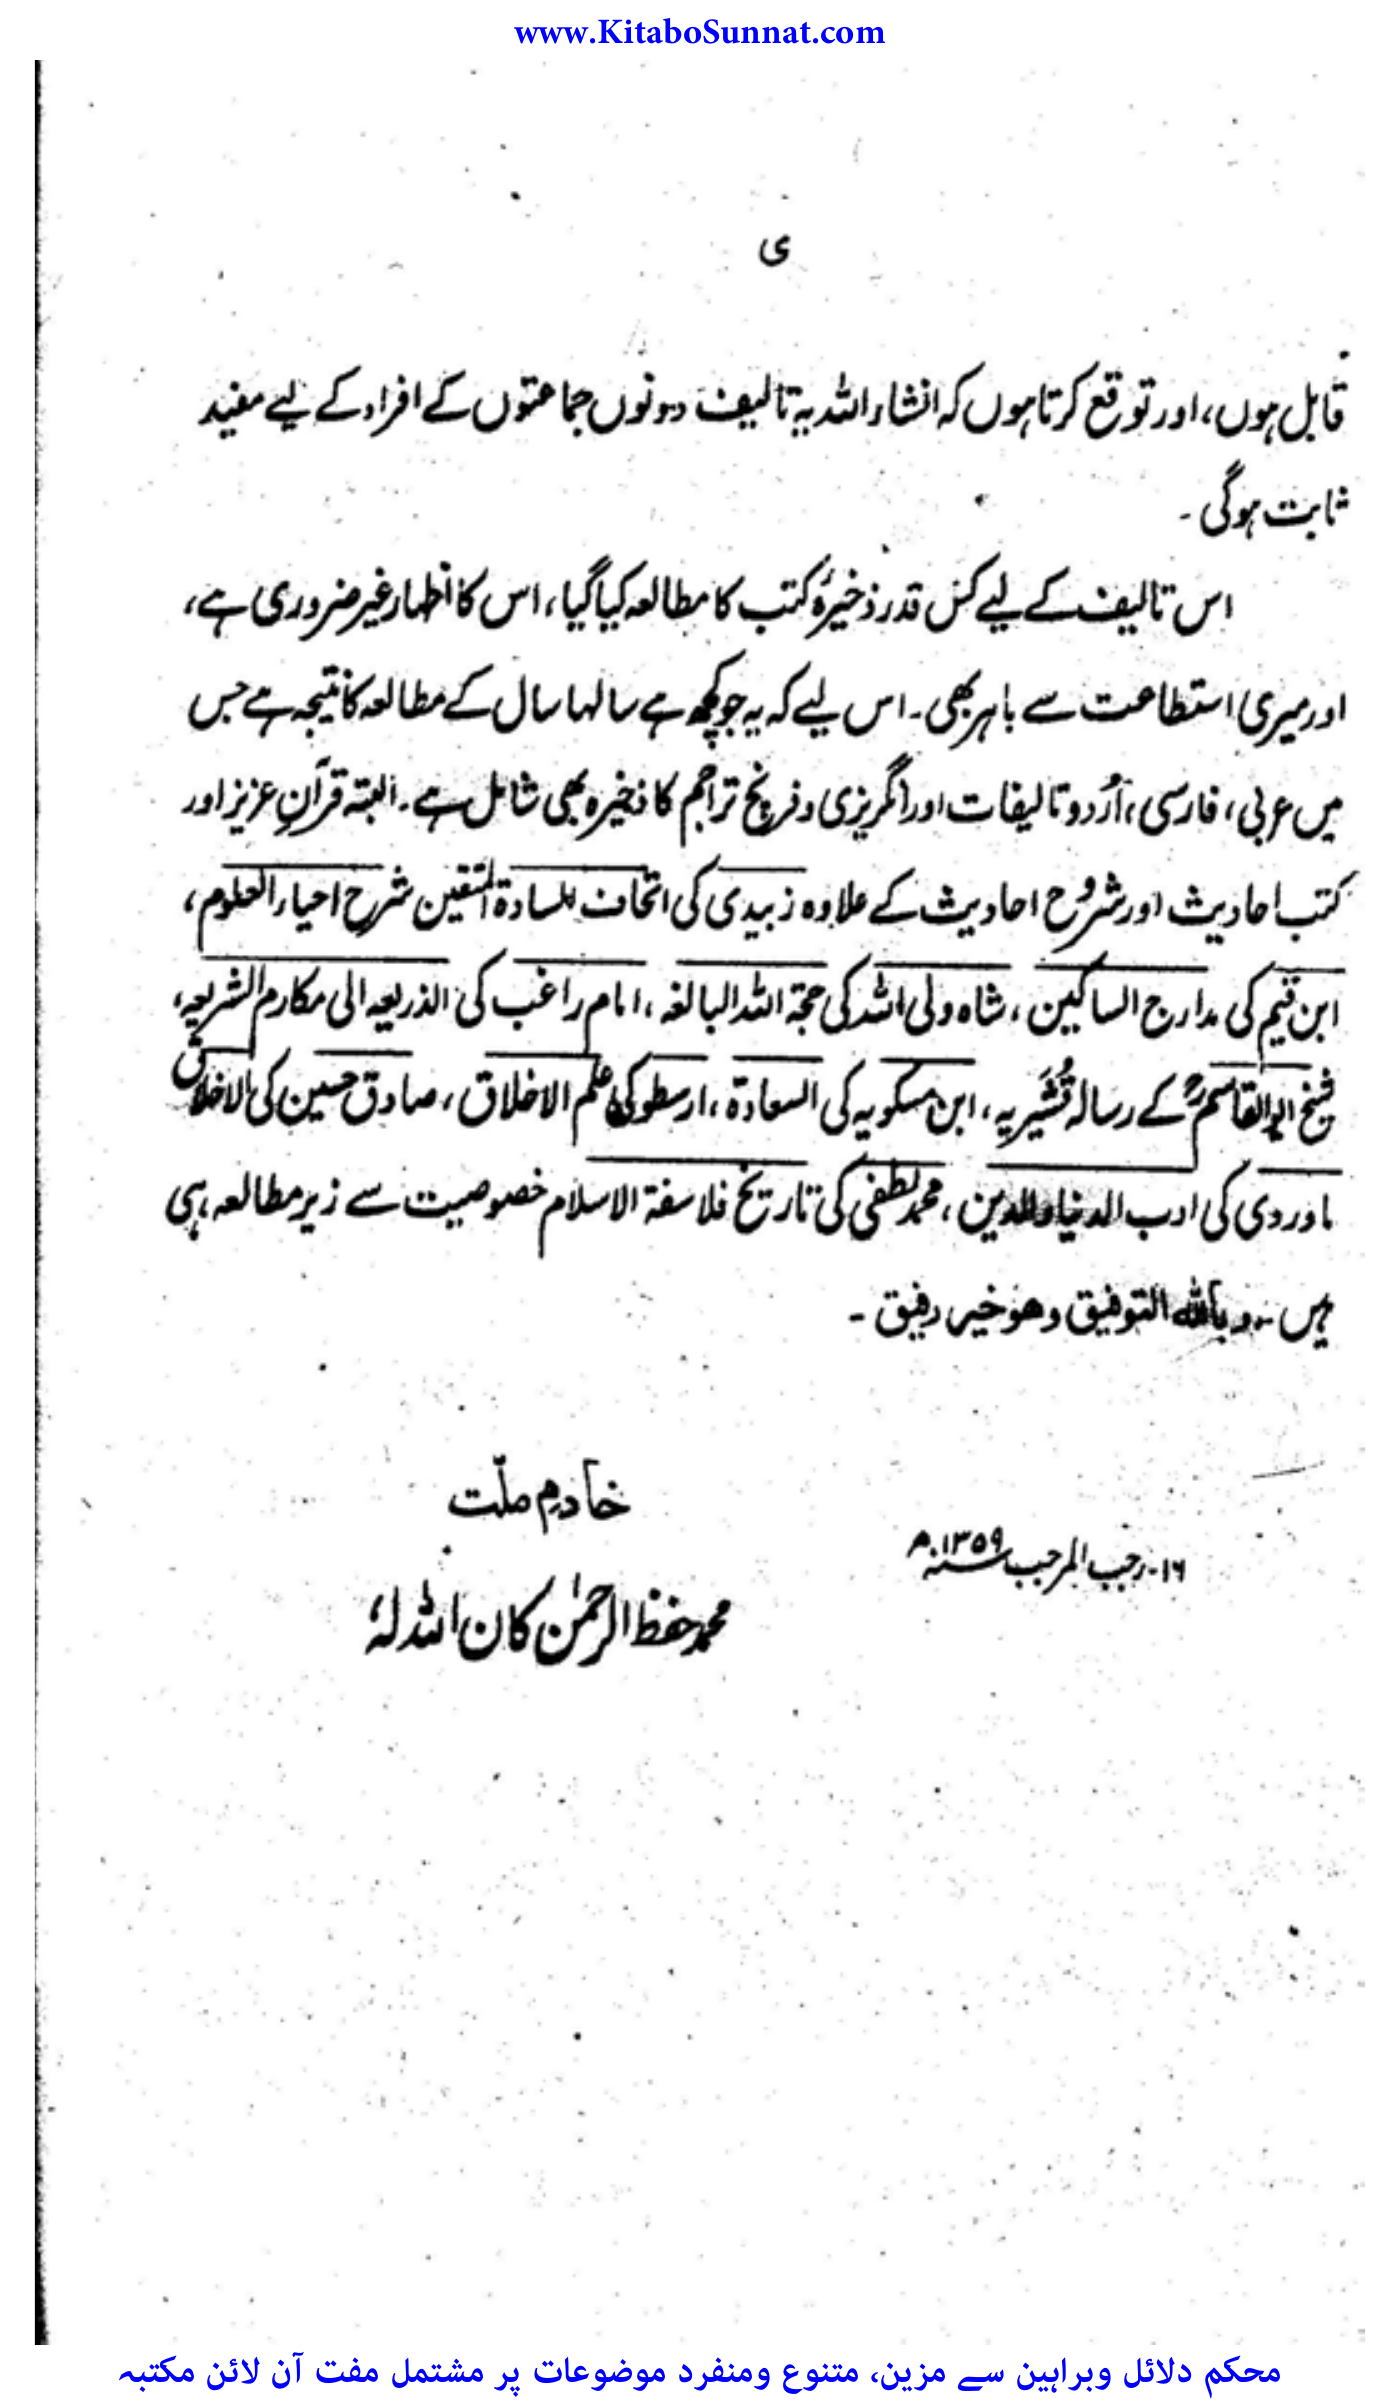 www.KitaboSunnat.com
ی
قابل ہوں، اور توقع کرتا ہوں کہ انشاء اللہ یہ تالیف دونوں جماعتوں کے افراد کے لیے مفید
ثابت ہوگی۔
اس تالیف کے لیے کس قدر ذخیرۂ کتب کا مطالعہ کیا گیا، اس کا اظہار غیر ضروری ہے،
اور میری استطاعت سے باہر بھی۔ اس لیے کہ یہ جو کچھ ہے سالہا سال کے مطالعہ کا نتیجہ ہے جس
میں عربی، فارسی، اُردو تالیفات اور انگریزی و فرنچ تراجم کا ذخیرہ بھی شامل ہے۔ البتہ قرآنِ عزیز اور
کتب احادیث اور شرُوح احادیث کے علاوہ زبیدی کی اتحاف للسادۃ المتقین شرح احیاء العلوم،
ابن قیم کی مدارج السالکین، شاہ ولی اللہ کی حجۃ اللہ البالغہ، امام راغب کی الذریعہ الی مکارم الشریعہ،
شیخ ابوالقاسمؒ کے رسالہ قُشَیریہ، ابن مسکویہ کی السعادۃ، ارسطو کی علم الاخلاق، صادق حسین کی الاخلاق
ماوردی کی ادب الدنیا والدین، محمد لطفی کی تاریخ فلاسفۃ الاسلام خصوصیت سے زیر مطالعہ رہی
ہیں۔ وباللہ التوفیق وھو خیر رفیق۔
خادم ملّت
۱۶۔ رجب المرجب سنہ ۱۳۵۹ھ
محمد حفظ الرحمٰن کان اللہ لہٗ
محکم دلائل وبراہین سے مزین، متنوع ومنفرد موضوعات پر مشتمل مفت آن لائن مکتبہ